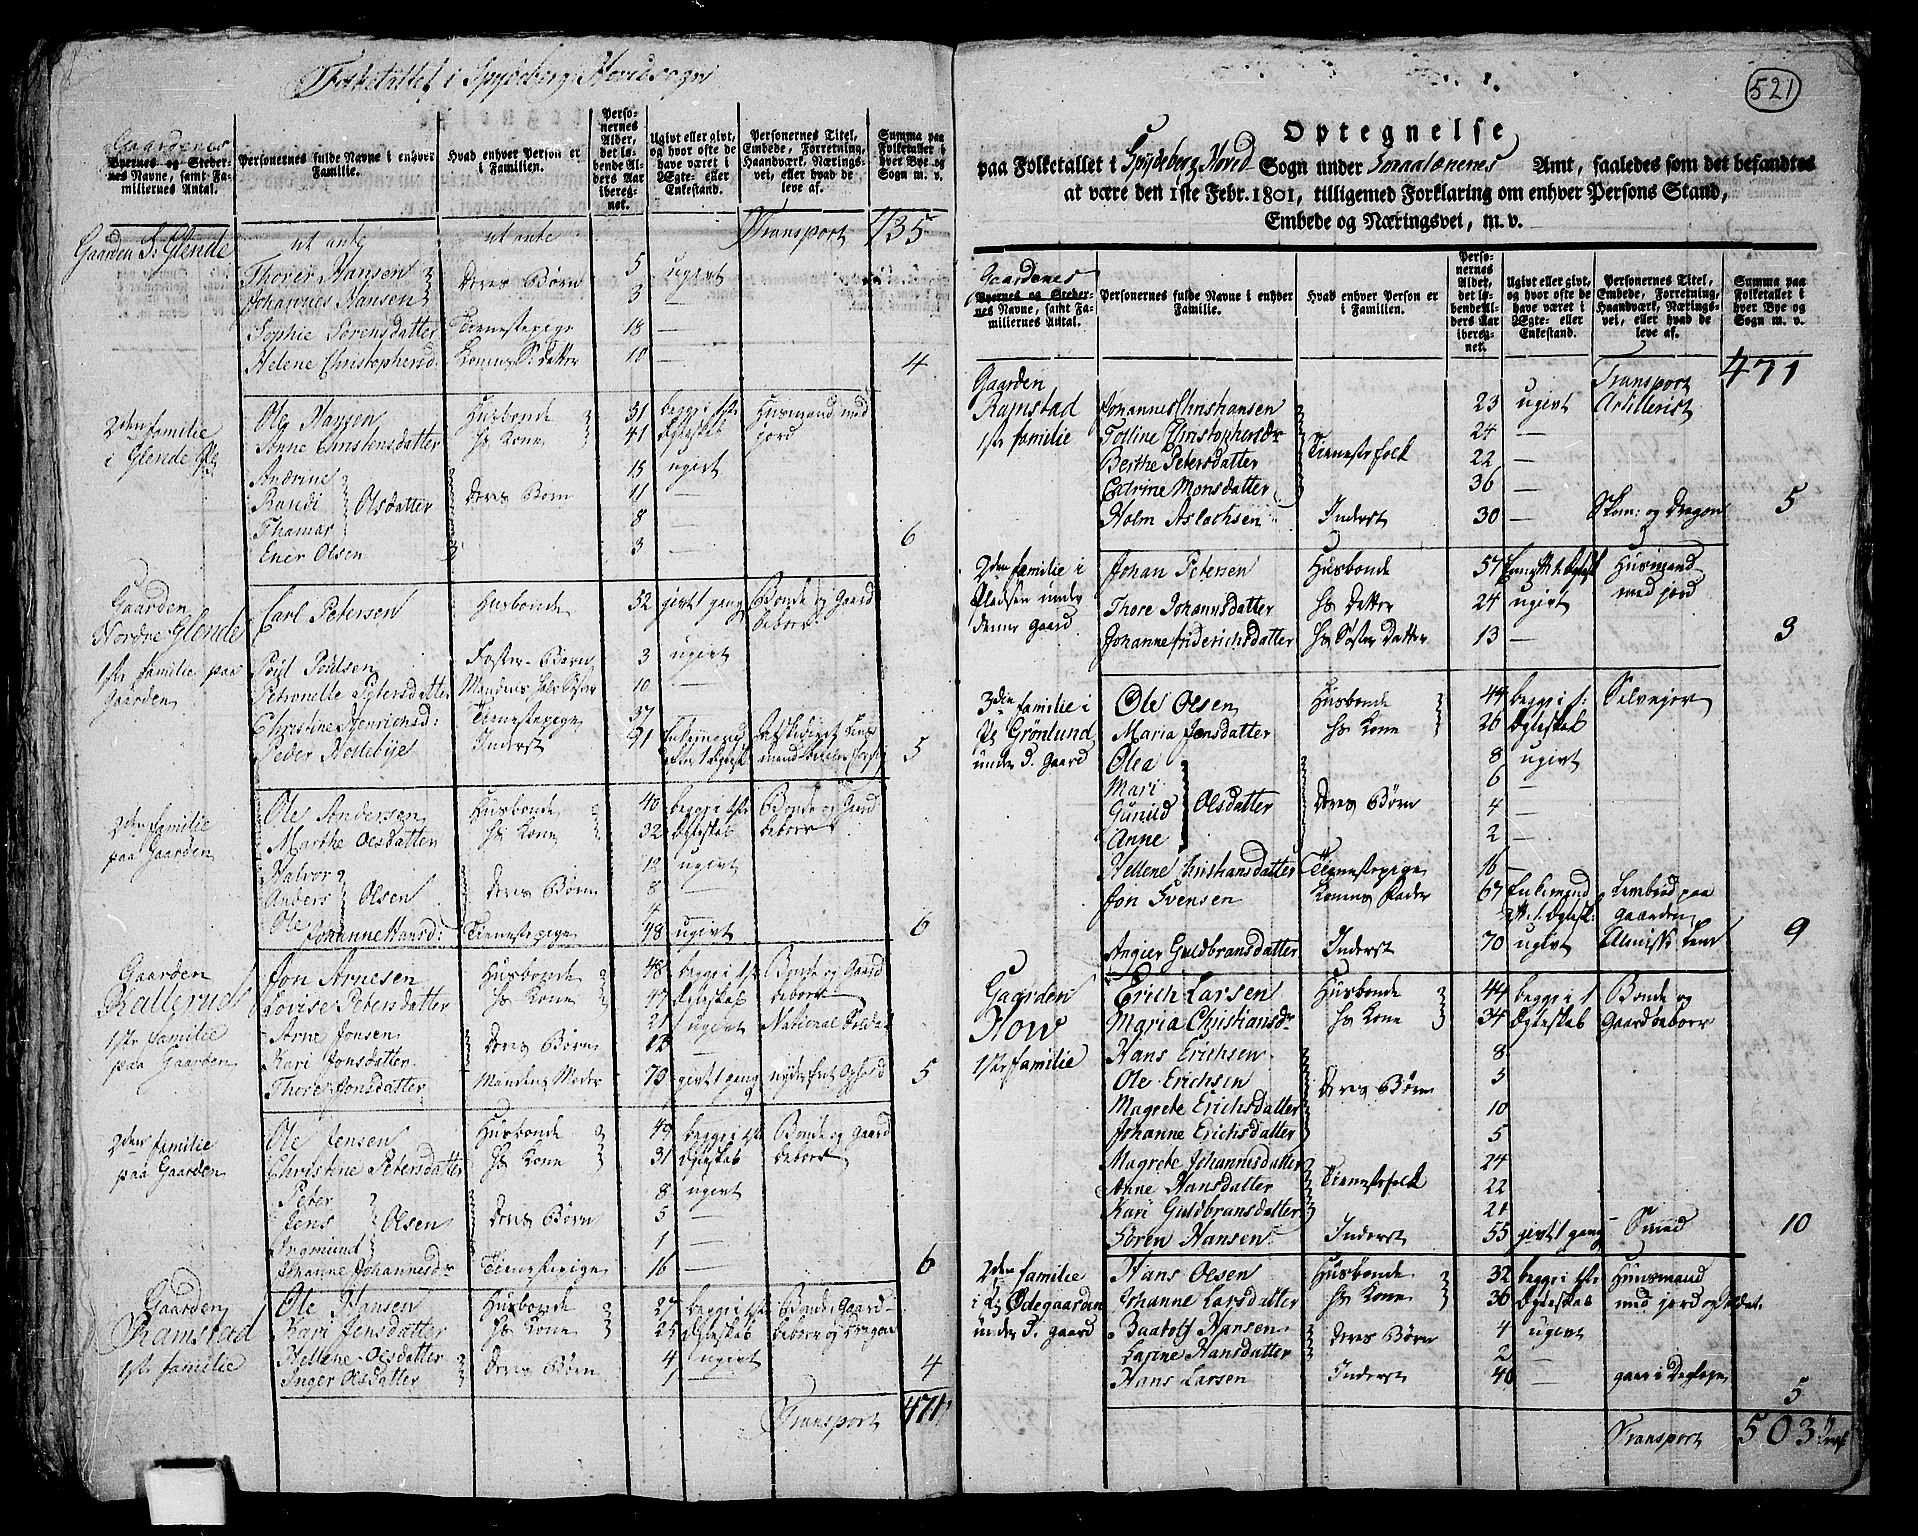 Folketallet i Spydeberg Hovedsogn
Gaardenes
Byernes og Stedernes Navne, samt Familiernes Antal.
Personernes fulde Navne i enhver Familie.
Hvad enhver Person er i Familien.
Personernes Alder, det løbende Alders Aar iberegnet.
Ugivt eller givt, og hvor ofte de have været i Ægte- eller Enkestand.
Personernes Titel, Embede, Forretning, Haandværk, Næringsvei, eller hvad de leve af.
Summa paa Folketallet i hver Bye og Sogn m. v.
Transport 435
Gaarden S: Glende ut ante ut ante
Thorer Hansen Deres Børn 5 ugivt
Johannes Hansen 3 —
Sophie Sörensdatter Tienestepige 18 —
Helene Christophersd: Konens S: datter 10 — 4
2den familie i Glende Pl
Ole Hansen Husbonde 51 begge i 1ste Husmand med
Anne Christensdatter Hs Kone 41 Egteskab jord
Andrine 15 ugivt
Randi Olsdatter Deres Børn 11 —
Thamar 8 —
Ener Olsen 3 — 6
Gaarden Nordre Glende
1ste familie paa Gaarden
Carl Petersen Husbonde 52 givt 1 gang Bonde og Gaard beboer
Poul Poulsen Foster-Børn 3 ugivt
Petronelle Pettersdatter Mandens 10 —
Christine Henrichsd: Tienestepige 37
Peder Nollebye Inderst 41 Enkemand 5
2den familie paa Gaarden
Ole Andersen Husbonde 40 begge i 1ste Bonde og Gaard
Marthe Olsdatter Hs Kone 32 Egteskab beboer
Halvor 12 ugivt
Anders Olsen Deres Børn 8 —
Ole 4
Johanne Hansd: Tienestepige 48 ugivt 6
Gaarden Rallerud
1ste familie paa Gaarden
Jon Arnesen Husbonde 48 begge i 1ste Bonde og Gaard
Lovise Petersdatter Hs Kone 47 Egteskab beboer
Arne Jonsen Deres Børn 21 ugivt National Soldat
Kari Jonsdatter 12 —
Thore Jonsdatter Mandens Moder 79 givt 1 gang nyder frit Ophold 5
2den familie paa Gaarden
Ole Jensen Husbonde 49 begge i 1ste Bonde og Gaard
Christine Petersdatter Hs Kone 31 Egteskab beboer
Peter 8 ugivt
Jens Olsen Deres Børn 5 —
Ingmund 1 —
Johanne Johannesdr Tienestepige 16 — 6
Gaarden Ramstad
1ste familie
Ole Hansen Husbonde 27 begge i 1ste Bonde, Gaard-
Kari Jensdatter Hs Kone 25 Egteskab beboer og Dragon
Hellene Olsdatter Deres Børn 4 ugivt
Inger Olsdatter 1 — 4
Transport 471
521
Optegnelse
paa Folketallet i Spydeberg Hoved Sogn under Smaalænenes Amt, saaledes som det befandtes
at være den 1ste Febr. 1801, tilligemed Forklaring om enhver Persons Stand,
Embede og Næringsvei, m. v.
Gaardenes
Byernes og Stedernes Navne, samt Familiernes Antal.
Personernes fulde Navne i enhver Familie.
Hvad enhver Person er i Familien.
Personernes Alder, det løbende Alders Aar iberegnet.
Ugivt eller givt, og hvor ofte de have været i Ægte- eller Enkestand.
Personernes Titel, Embede, Forretning, Haandværk, Næringsvei, eller hvad de leve af.
Summa paa Folketallet i hver Bye og Sogn m. v.
Transport 471
Gaarden Ramstad
1ste familie
Johannes Christiansen 23 ugivt Artillerist
Tolline Christophersdr Tienestefolk 24 —
Berthe Petersdatter 22 —
Edrine Monsdatter 36 —
Holm Aslachsen Inderst 30 — Skom: og Dragon 5
2den familie i Pladsen under denne Gaard
Johan Petersen Husbonde 57 Husmand
Thore Johannsdatter Hs Datter 24 ugivt med jord
Johanne Friderichsdatter Hs Søster Datter 13 — 3
3die familie i Pl Grönlund under d. Gaard
Ole Olsen Husbonde 44 begge i 1: Selvejer
Maria Jonsdatter Hs Kone 26 Egteskab
Olea 8 ugivt
Mari 6 —
Gunild Olsdatter Deres Børn 4 —
Anne 2 —
Hellene Christiansdatter Tienestepige 16 —
Jon Svensen Konens Fader 67 Enkemand Levebrød paa
1. Egtesk: Gaarden
Angier Guldbransdatter Inderst 70 ugivt Almisse Lem 9
Gaarden How
1ste familie
Erich Larsen Husbonde 44 begge i 1 Bonde og
Maria Christiansdr Hs Kone 34 Egteskab Gaardbeboer
Hans Erichsen 8
Ole Erichsen Deres Børn 3
Magrete Erichsdatter 10
Johanne Erichsdatter 5
Magrete Johannisdatter 24
Anne Hansdatter Tienestefolk 22
Kari Guldbransdatter 21
Sören Hansen Inderst 55 givt 1 gang Smed 10
2den familie i Pl Ödegaarden under d. gaard
Hans Olsen Husbonde 32 begge i 1ste Huusmand
Johanne Larsdatter Hs Kone 36 Egteskab med jord og Soldat
Baarolf Hansen Deres Børn 4 ugivt
Larine Hansdatter 2 —
Hans Larsen Inderst 40 — gaar i Dagleje 5
Transport 503